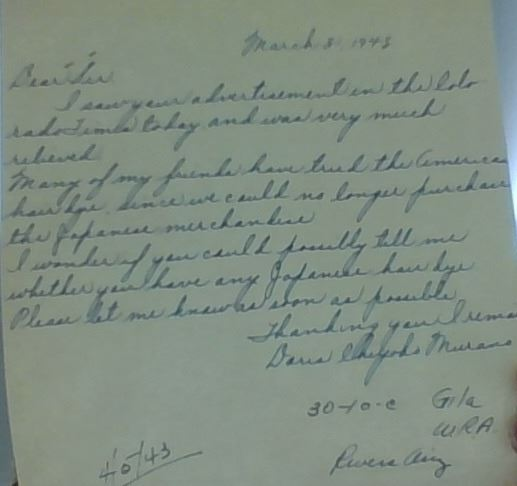 March 3, 1943
Dear Sir
I saw your advertisement in the Colo
rado Times today and was very much
relieved
Many of my friends have tried the America
hair dye since we could no longer purchase
the Japanese merchandise
I wonder if you could possibly tell me
whether you have any Japanese hair dye
Please let me know as soon as possible
Thanking you I remai
Doris Chiyoko Murano
30-10-C Gila
W.R.A.
Rivers Ariz
4/5/43